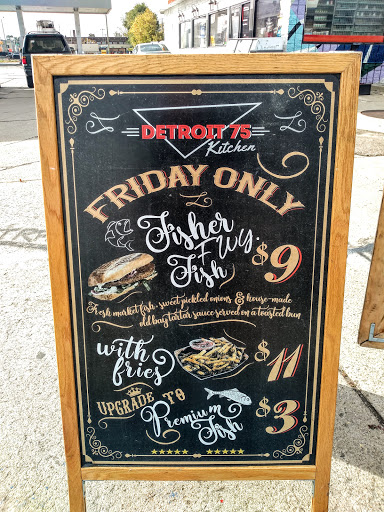 DETROIT 75
Kitchen
FRIDAY ONLY
Fisher
Fwy.
Fish
$9
Fresh market fish, sweet pickled onions & house-made
old bay tartar sauce served on a toasted bun
with
fries
$11
UPGRADE TO
Premium
Fish
$3